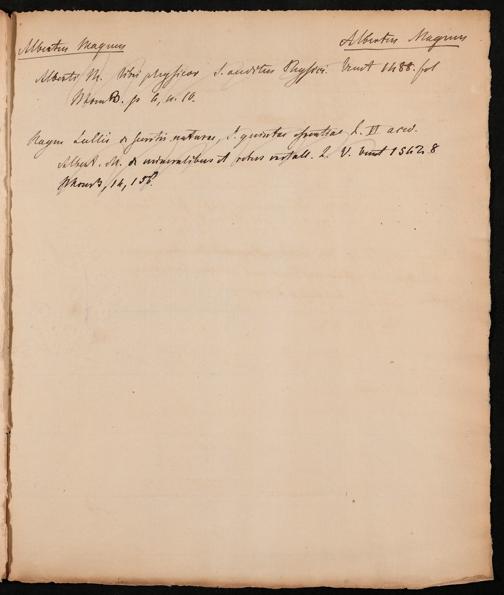 Albertus Magnus Albertus Magnus
Alberti M. libri physicor. s. auditus Physici. Venet 1488. fol
p 6, n. 10.
Raym Lullii de secretis naturae, s. quintae essentiae L. II acced.
Albert. M. de mineralibus et rebus metall. L. V. Venet 1542. 8
14, 158.